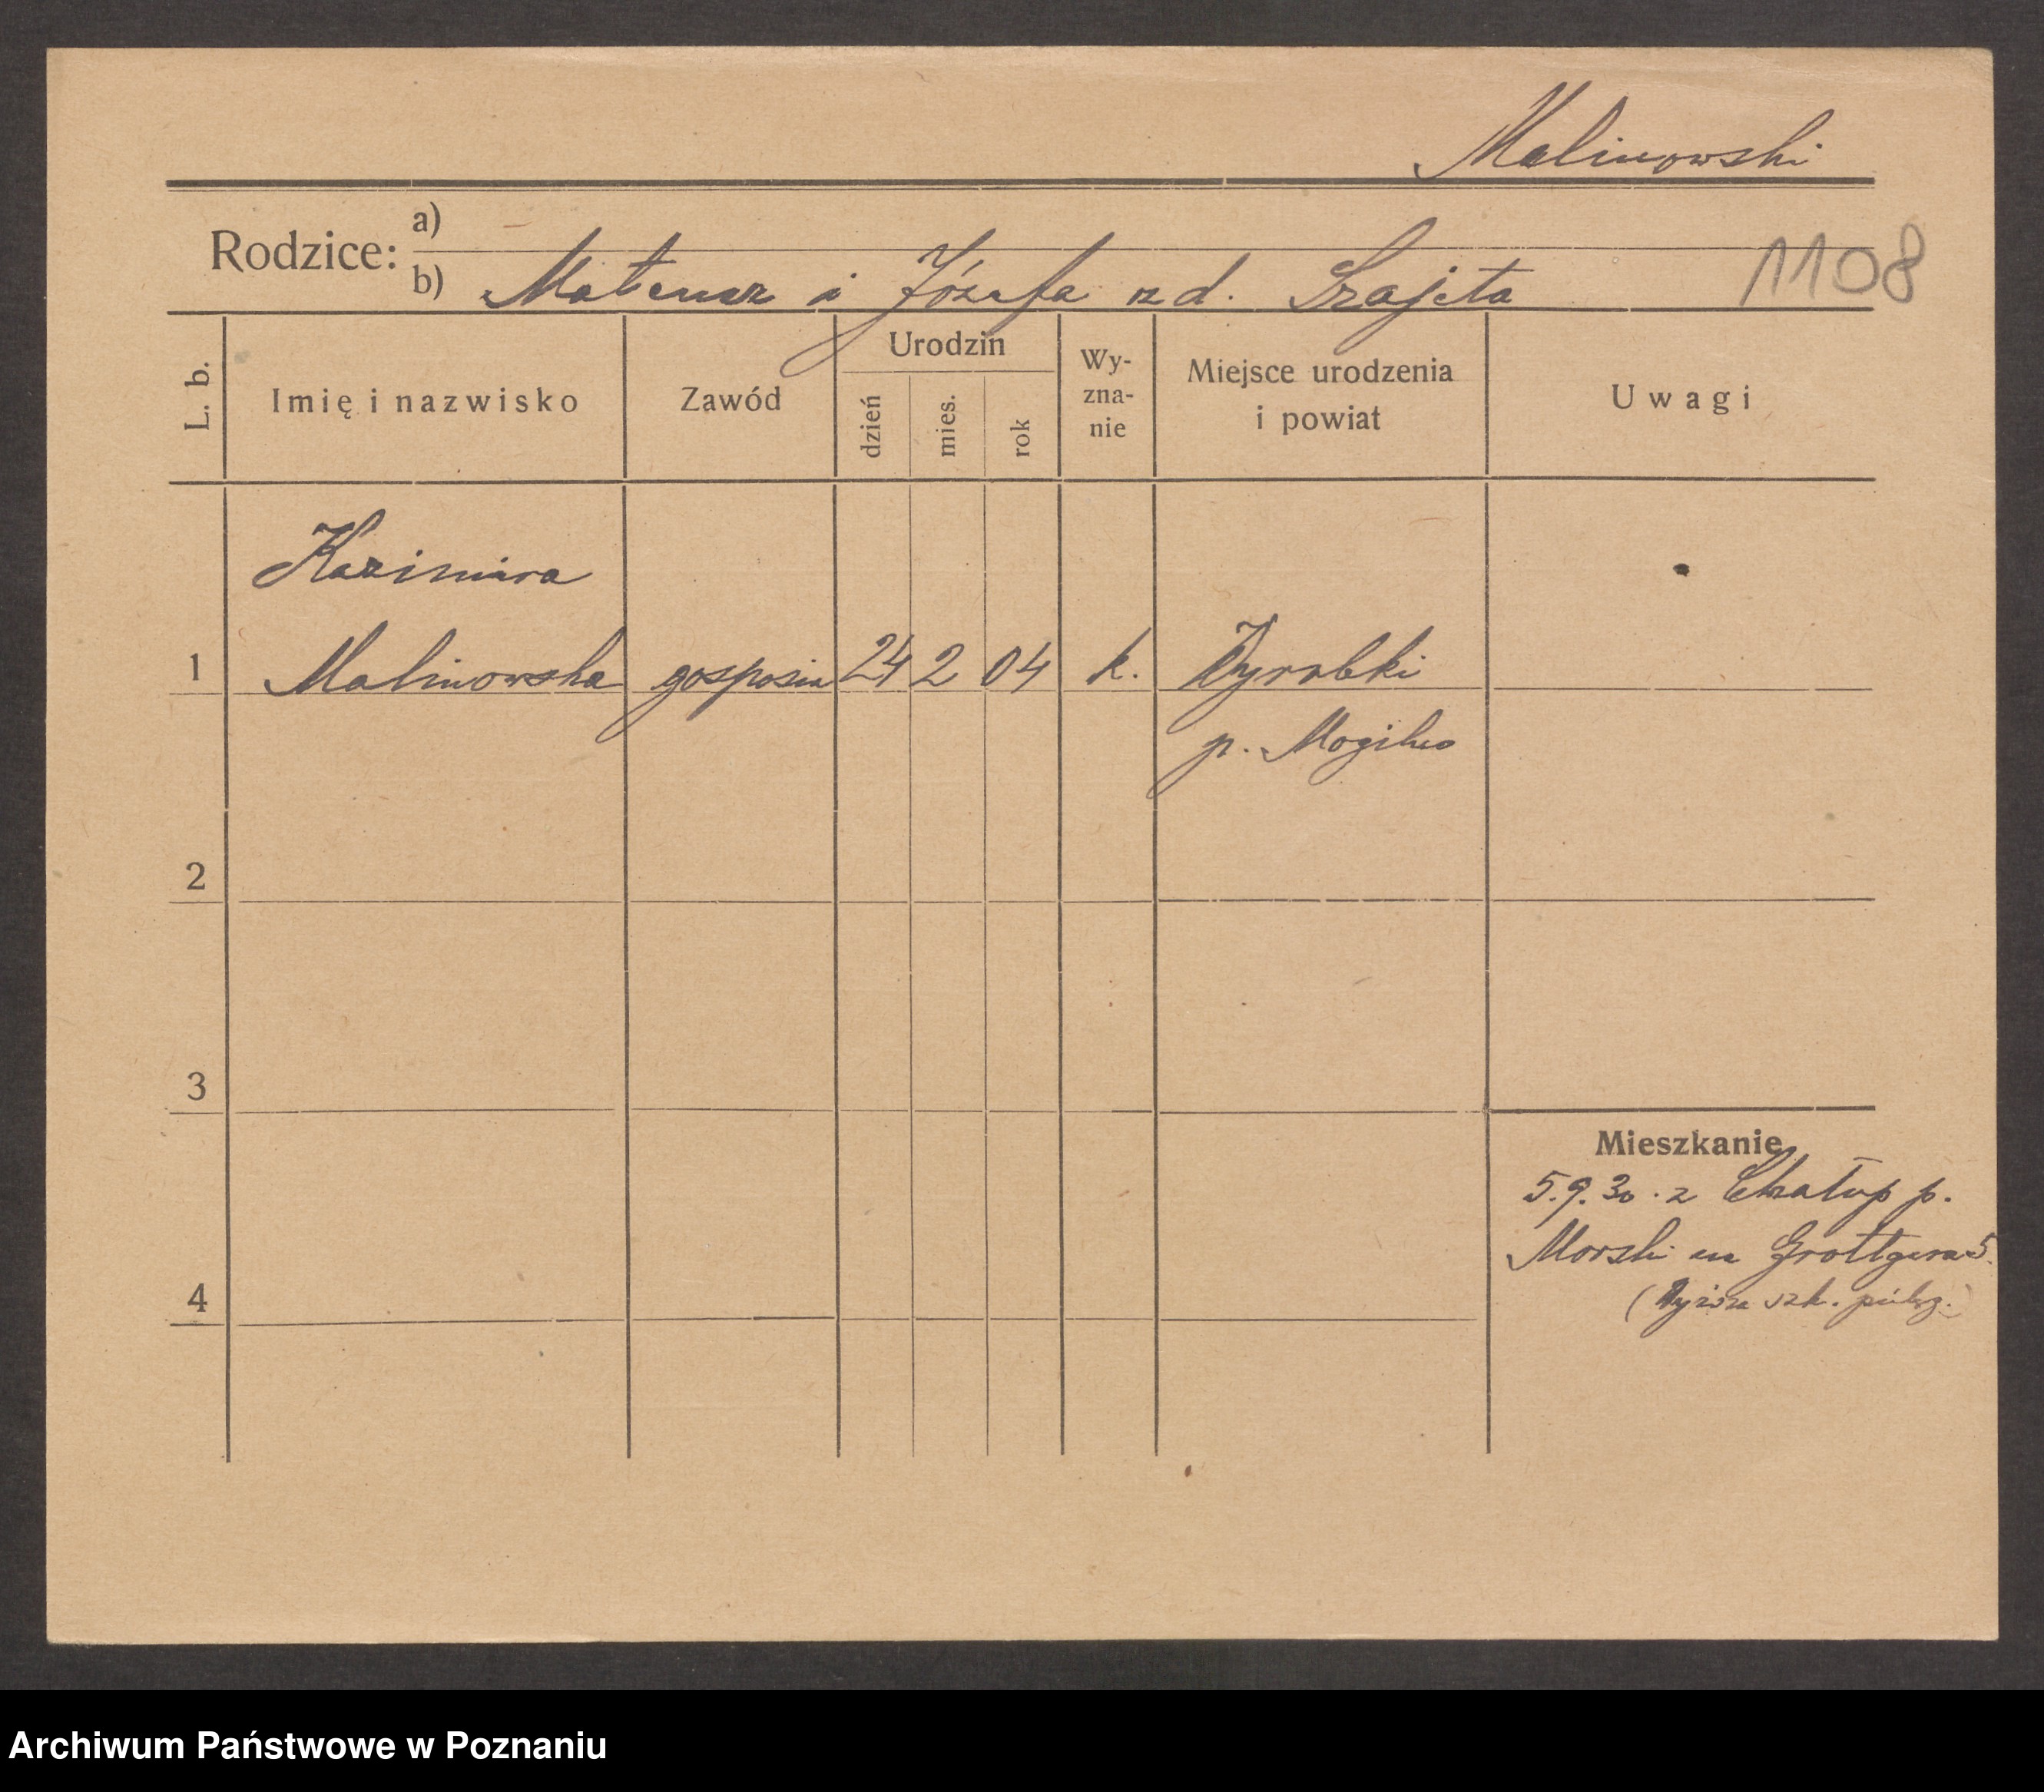 Malinowski
Rodzice:
a)
b) Mateusz i Józefa zd. Szajeta
1108
L. b.
Imię i nazwisko
Zawód
Urodzin
dzień
mies.
rok
Wy-
zna-
nie
Miejsce urodzenia
i powiat
Uwagi
Kazimiera
1 Malinowska gosposia 24 2 04 k. Wyrobki
p. Mogilno
2
3
4
Mieszkanie
5.9.30. z Chałup p.
Morski na Grottgera 5.
(Wyższa szk.
Archiwum Państwowe w Poznaniu